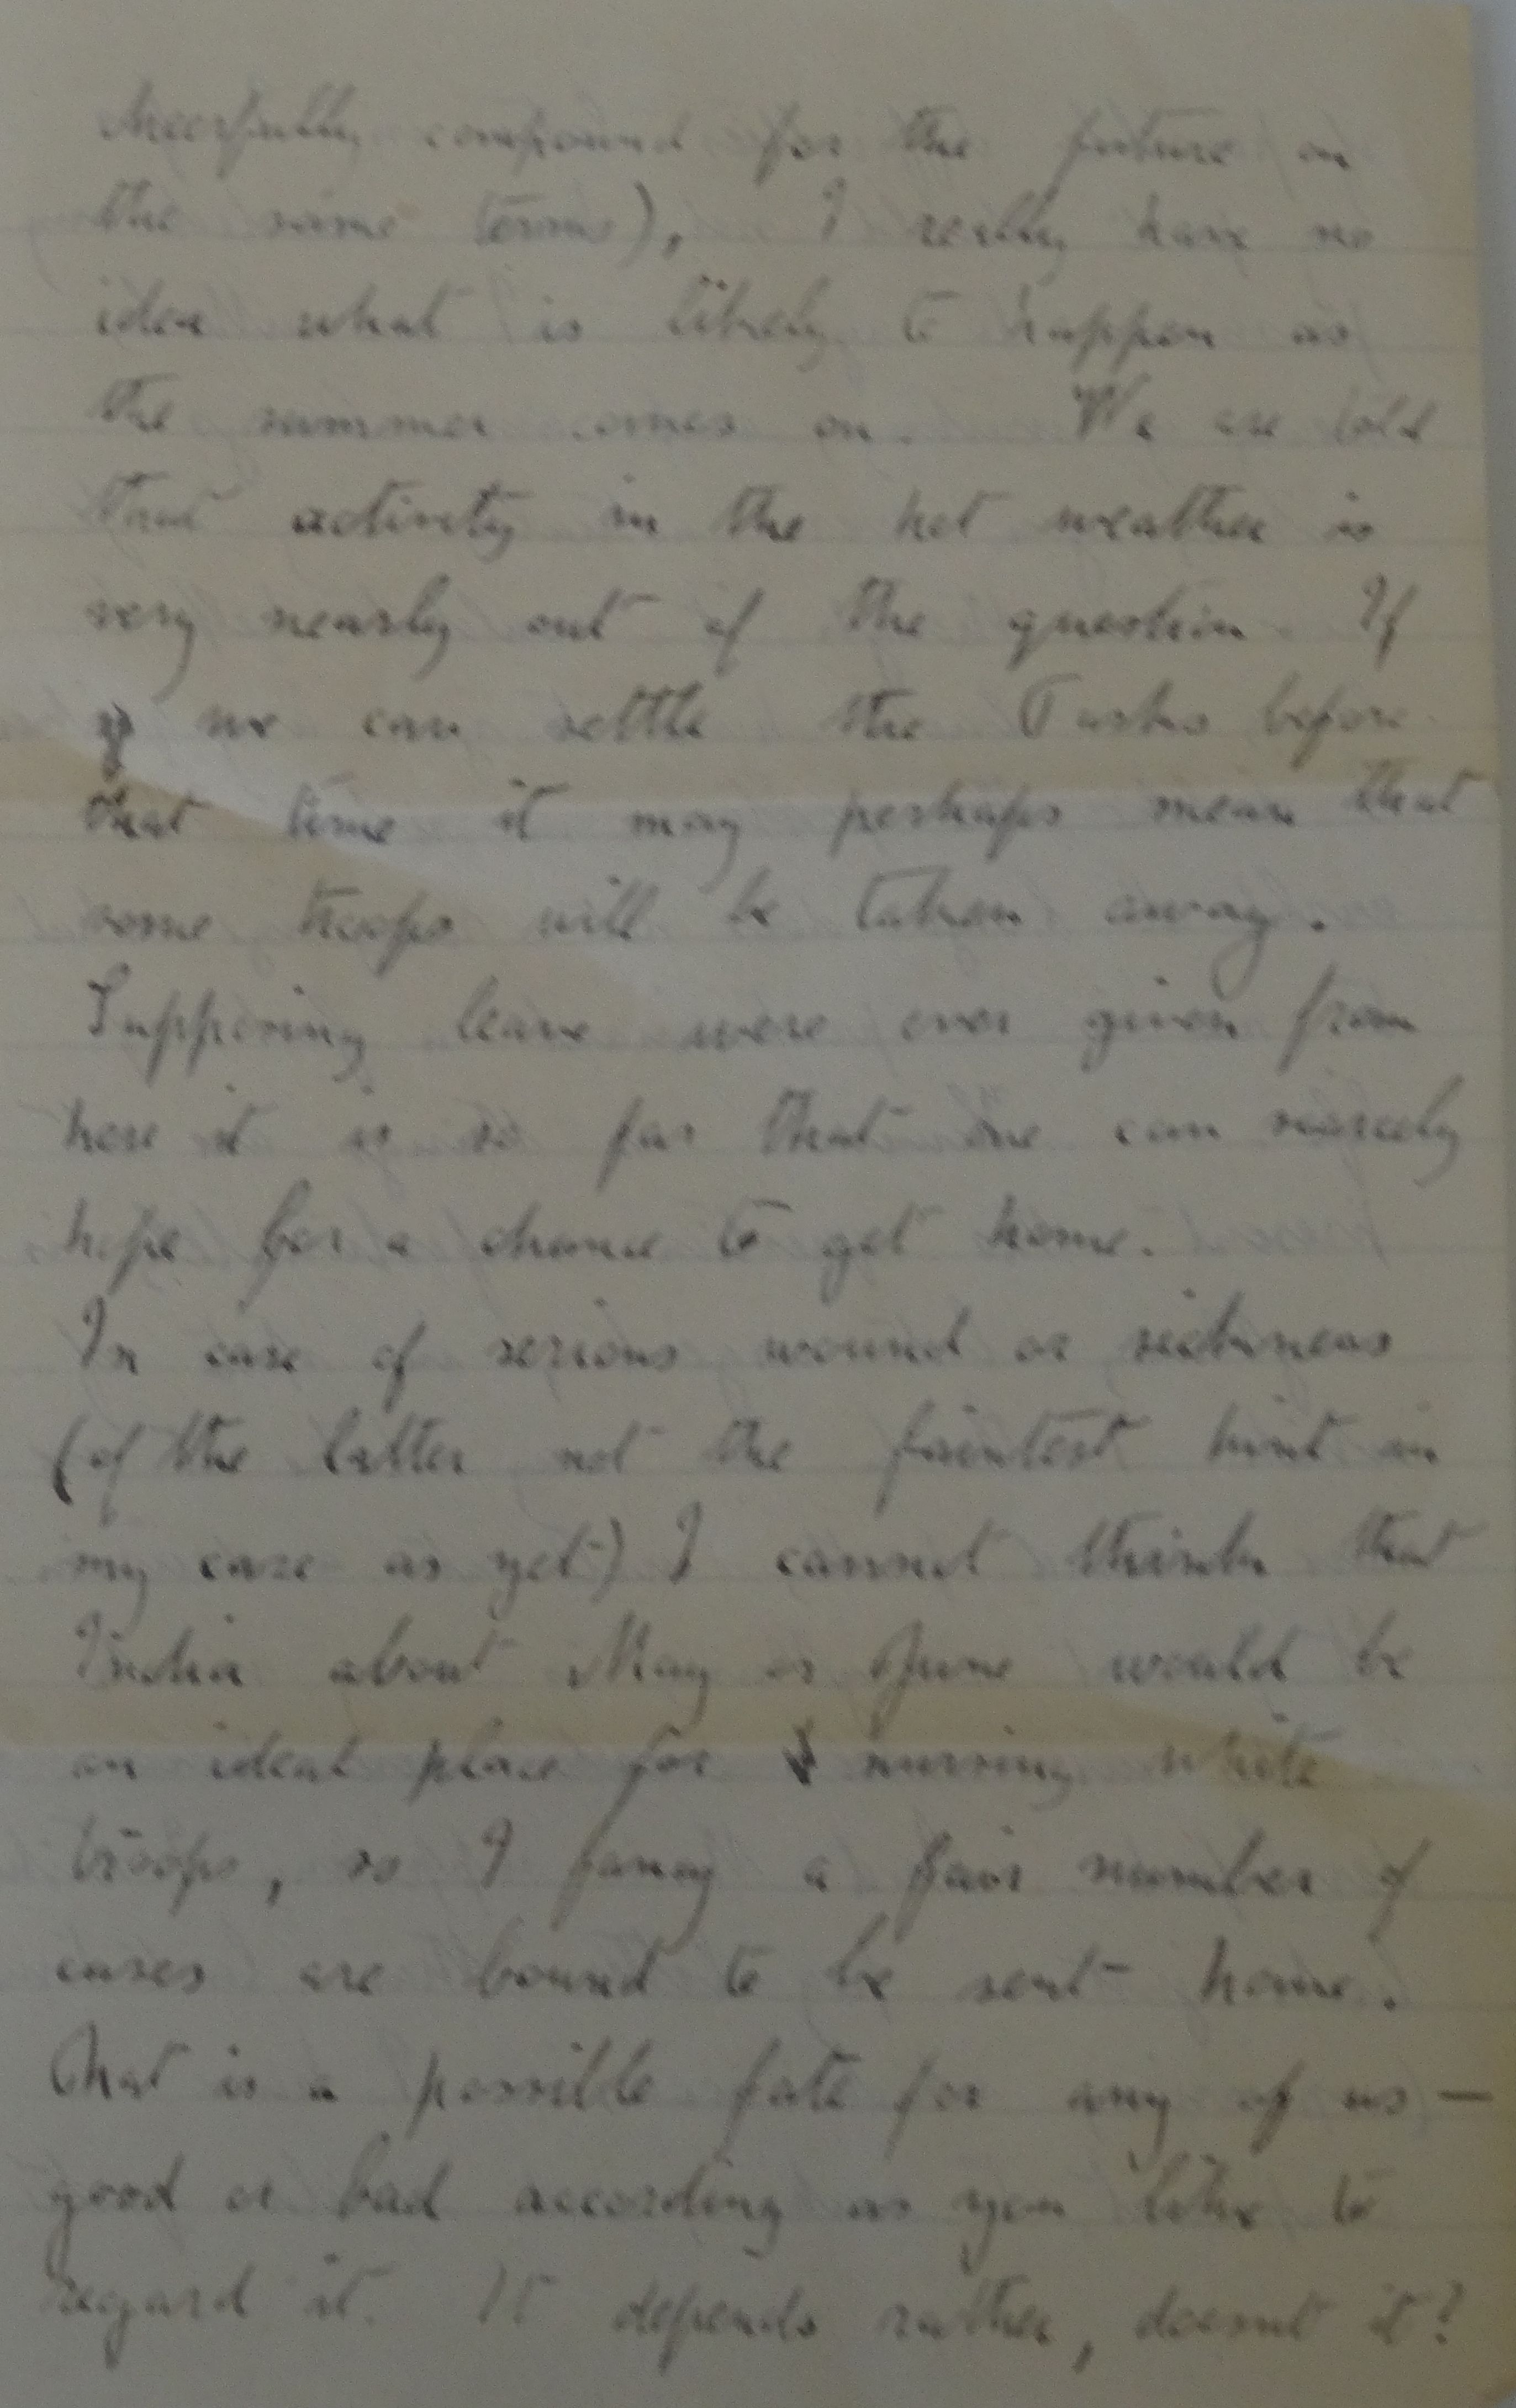 cheerfully compound for the future on
the same terms), I really have no
idea what is likely to happen as
the summer comes on. We are told
that activity in the hot weather is
very nearly out of the question. If
if we can settle the Turks before
that time it may perhaps mean that
some troops will be taken away.
Supposing leave were ever given from
here it is so far that one can scarcely
hope for a chance to get home.
In case of serious wound or sickness
(of the latter not the faintest hint in
my case as yet) I cannot think that
India about May or June would be
an ideal place for nursing white
troops, so I fancy a fair number of
cases are bound to be sent home.
That is a possible fate for any of us —
good or bad according as you like to
regard it. It depends rather, doesnt it?